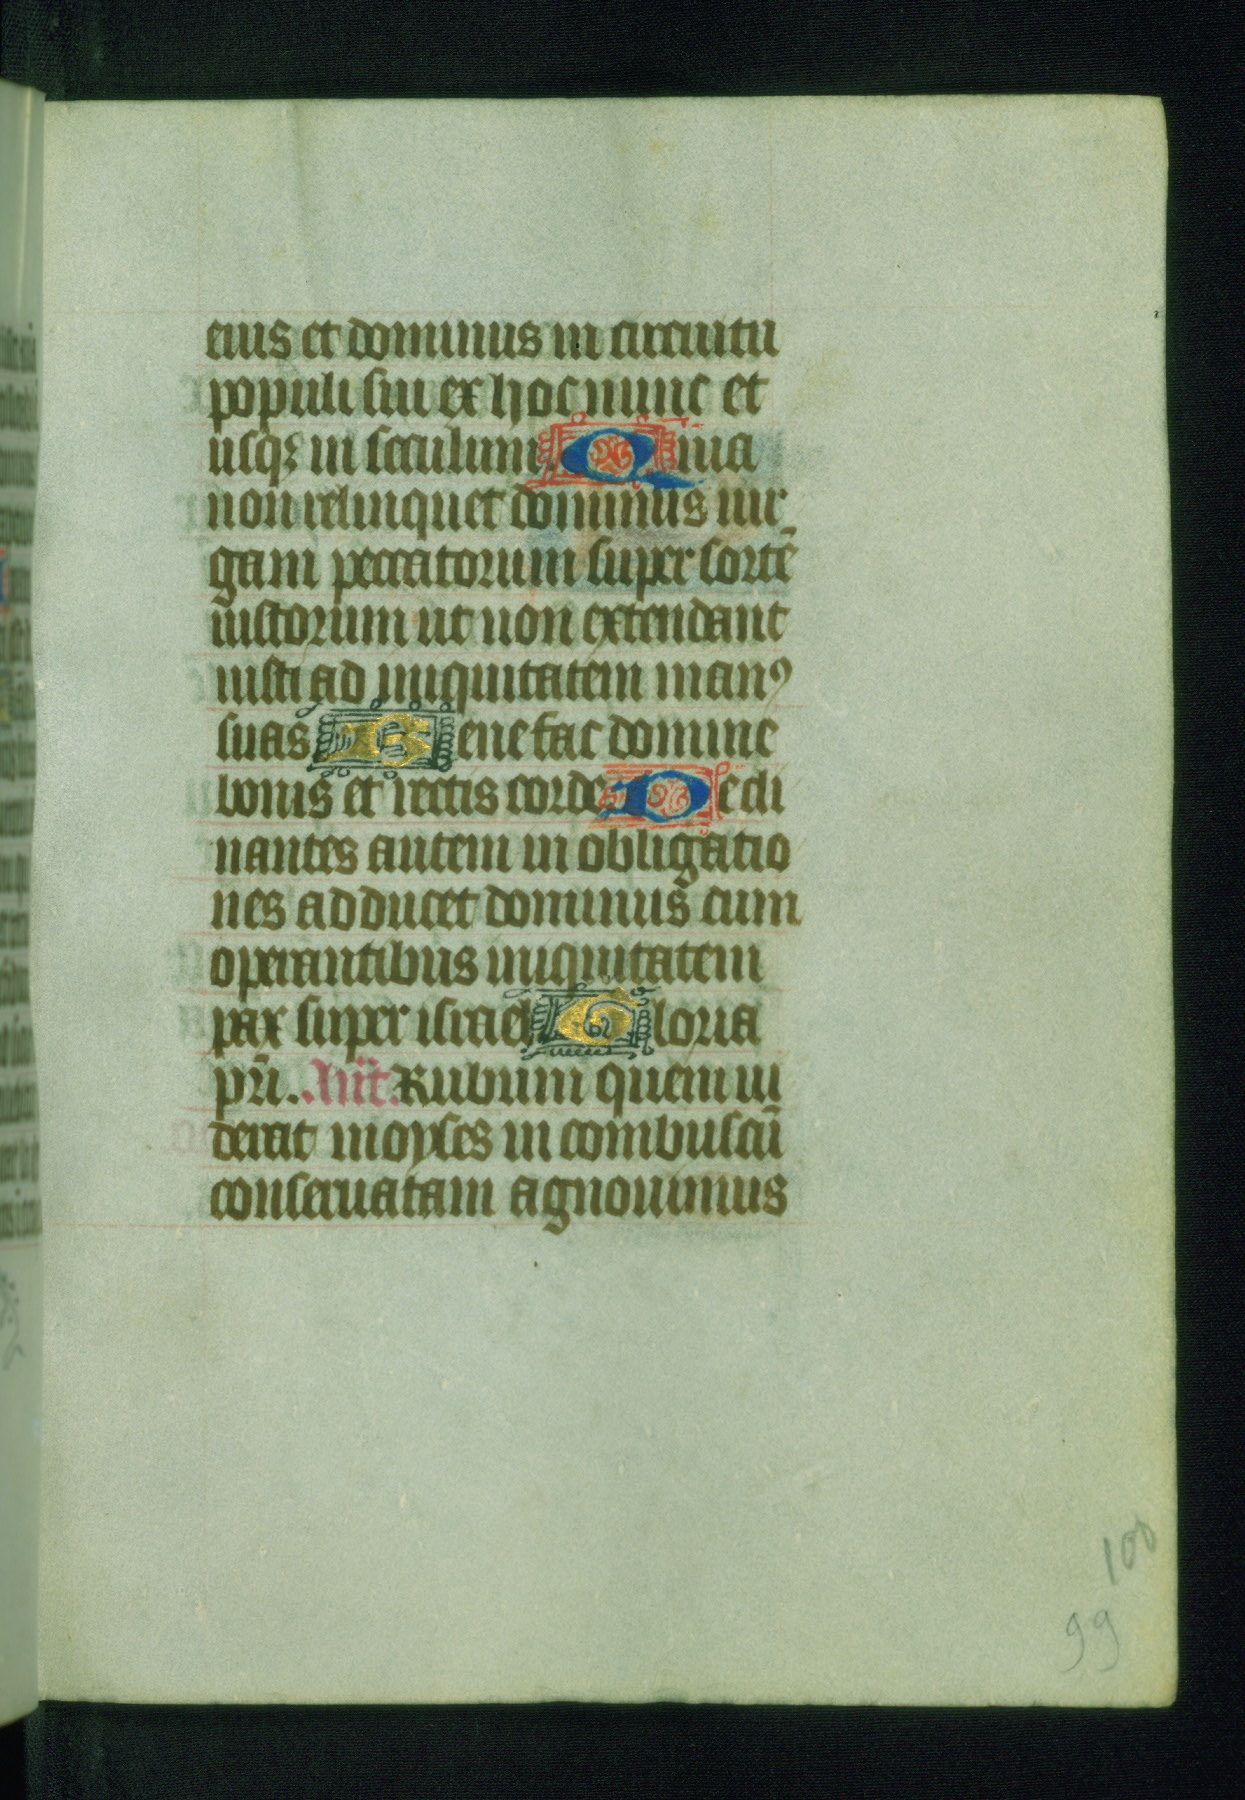 eius et dominus in circuitu
populi sui ex hoc nunc et
usqꝫ in seculum. Quia
non relinquet dominus uir
gam peccatorum super sortē
iustorum ut non extendant
iusti ad iniquitatem manꝰ
suas Benefac domine
bonis et rectis corde Decli
nantes autem in obligatio
nes adducet dominus cum
operantibus iniquitatem
pax super israel Gloria
pr̄i. Ant̄. Rubum quem ui
derat moyses in combustū
conseruatam agnouimus
100
99